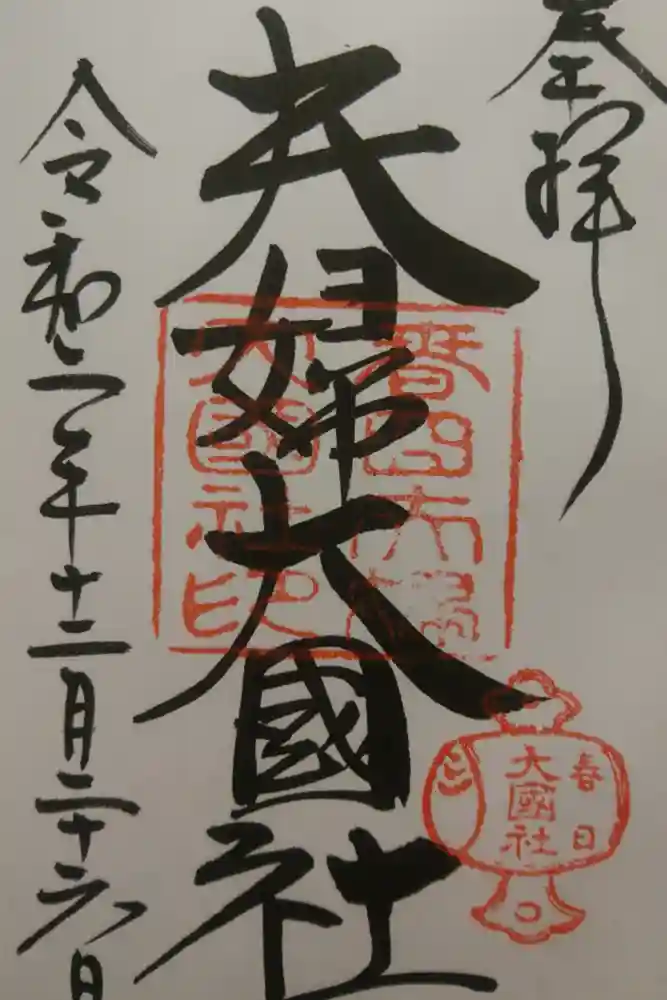 奉拝
夫婦大國社
春日夫婦
大國社印
春日
大國社
令和二年十二月二十六日